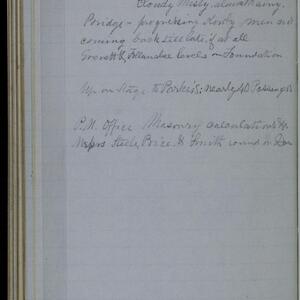 Cloudy Misty, almost rainy.
Poridge - progressing slowly men not
coming back till late, if at all
Everett & Follansbee levels on Foundation
Up on Stage to Parkers; nearly 40 Passengers
P.M. Office Masonry calculations &c
Messrs Steele, Price & Smith round in